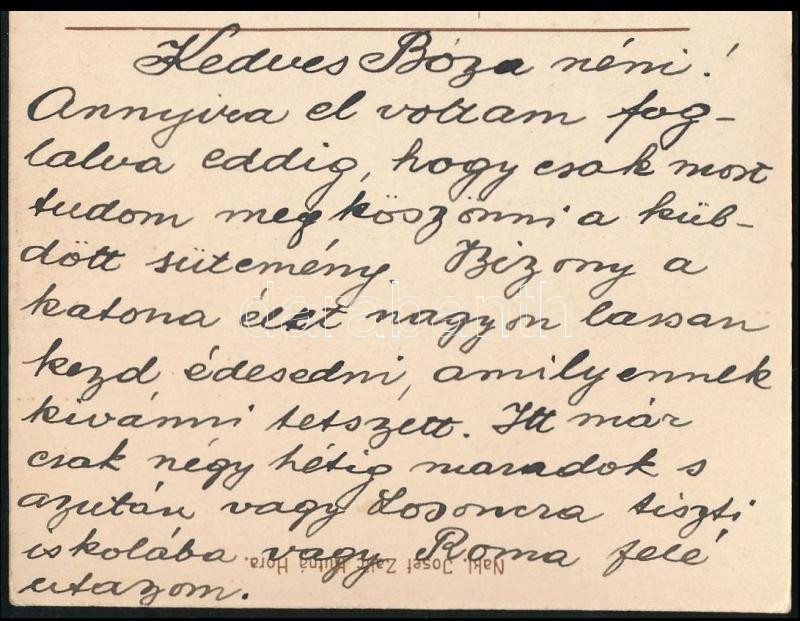 Kedves Bóza néni!
Annyira el voltam fog-
lalva eddig, hogy csak most
tudom megköszönni a kül-
dött sütemény. Bizony a
katona élet nagyon lassan
kezd édesedni, amilyennek
kivánni tetszett. Itt már
csak négy hétig maradok s
azután vagy Losoncra tiszti
iskolába vagy Roma felé
utazom.
Nakl. Josef Zajíc, Kutná Hora.
darabanth